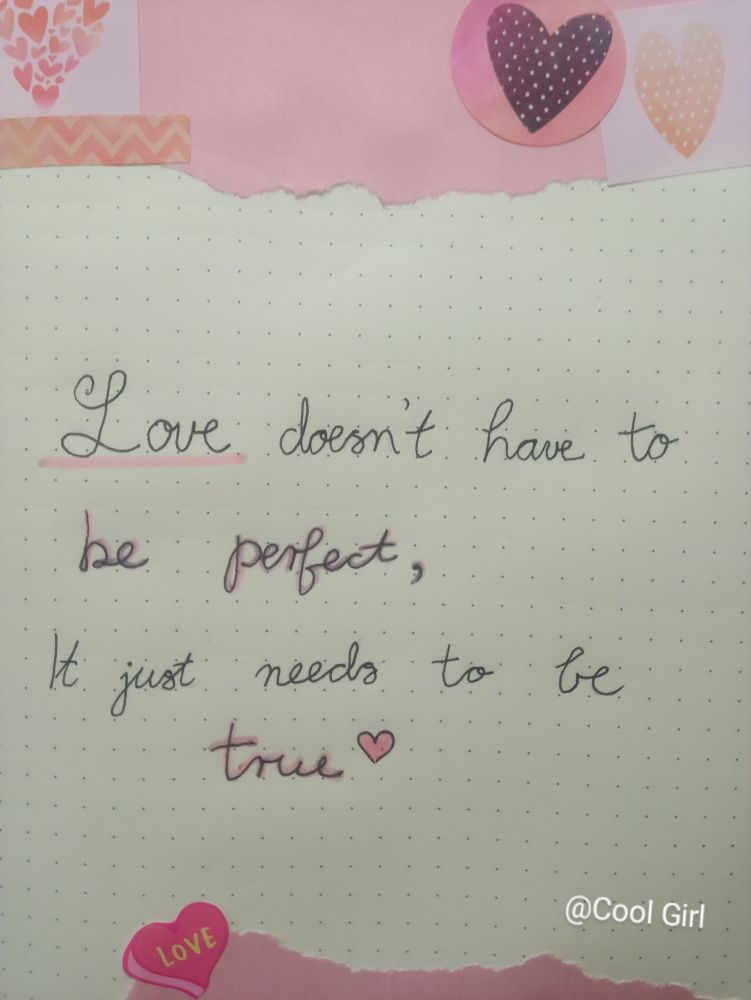 Love doesn't have to
be perfect,
It just needs to be
true
@Cool Girl
LOVE